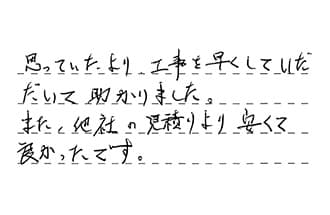 思っていたより、工事を早くしていただ
だいて助かりました。
また、他社の見積りより安くて
良かったです。